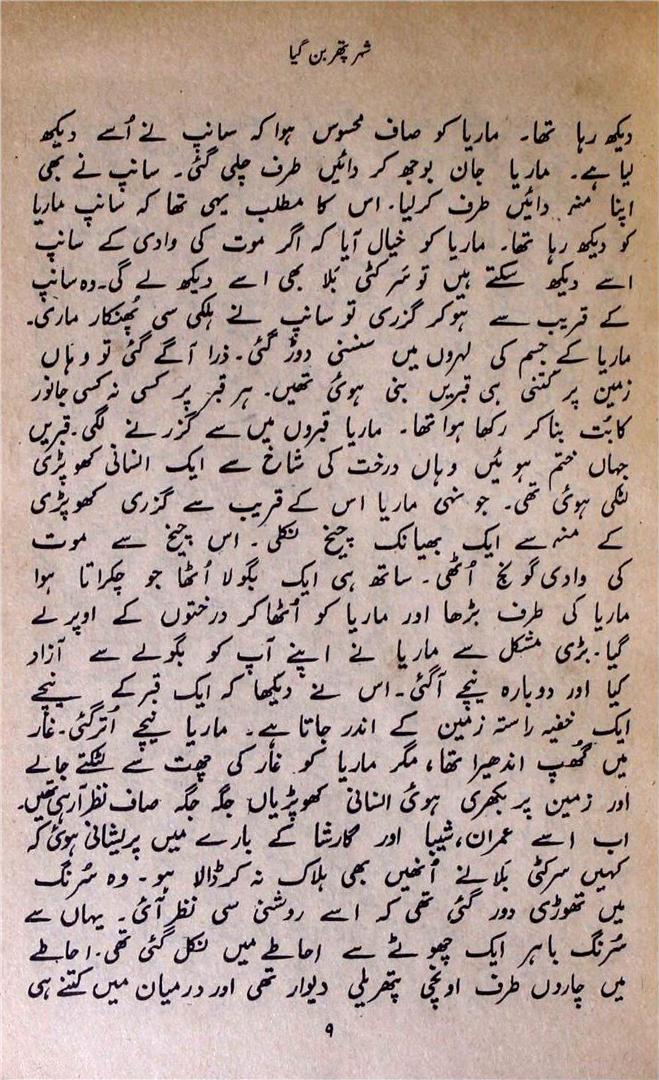 شہر پتھر بن گیا
دیکھ رہا تھا۔ ماریا کو صاف محسوس ہوا کہ سانپ نے اُسے دیکھ
لیا ہے۔ ماریا جان بوجھ کر دائیں طرف چلی گئی۔ سانپ نے بھی
اپنا منہ دائیں طرف کرلیا۔ اس کا مطلب یہی تھا کہ سانپ ماریا
کو دیکھ رہا تھا۔ ماریا کو خیال آیا کہ اگر موت کی وادی کے سانپ
اسے دیکھ سکتے ہیں تو سَر کٹی بَلا بھی اسے دیکھ لے گی۔ وہ سانپ
کے قریب سے ہوکر گزری تو سانپ نے ہلکی سی پُھنکار ماری۔
ماریا کے جسم کی لہروں میں سنسنی دوڑ گئی۔ ذرا آگے گئی تو وہاں
زمین پر کتنی ہی قبریں بنی ہوئی تھیں۔ ہر قبر پر کسی نہ کسی جانور
کا بُت بنا کر رکھا ہوا تھا۔ ماریا قبروں میں سے گزرنے لگی۔ قبریں
جہاں ختم ہوئیں وہاں درخت کی شاخ سے ایک انسانی کھوپڑی
لٹکی ہوئی تھی۔ جونہی ماریا اس کے قریب سے گزری کھوپڑی
کے منہ سے ایک بھیانک چیخ نکلی۔ اس چیخ سے موت
کی وادی گونج اُٹھی۔ ساتھ ہی ایک بگولا اُٹھا جو چکراتا ہوا
ماریا کی طرف بڑھا اور ماریا کو اُٹھا کر درختوں کے اوپر لے
گیا۔ بڑی مشکل سے ماریا نے اپنے آپ کو بگولے سے آزاد
کیا اور دوبارہ نیچے آگئی۔ اس نے دیکھا کہ ایک قبر کے نیچے
ایک خفیہ راستہ زمین کے اندر جاتا ہے۔ ماریا نیچے اُتر گئی۔ غار
میں گُھپ اندھیرا تھا، مگر ماریا کو غار کی چھت سے لٹکتے جالے
اور زمین پر بکھری ہوئی انسانی کھوپڑیاں جگہ جگہ صاف نظر آرہی تھیں۔
اب اسے عمران، شیبا اور گارشا کے بارے میں پریشانی ہوئی کہ
کہیں سرکٹی بَلا نے اُنھیں بھی ہلاک نہ کر ڈالا ہو۔ وہ سُرنگ
میں تھوڑی دور گئی تھی کہ اسے روشنی سی نظر آئی۔ یہاں سے
سُرنگ باہر ایک چھوٹے سے احاطے میں نکل گئی تھی۔ احاطے
میں چاروں طرف اونچی پتھریلی دیوار تھی اور درمیان میں کتنے ہی
۹